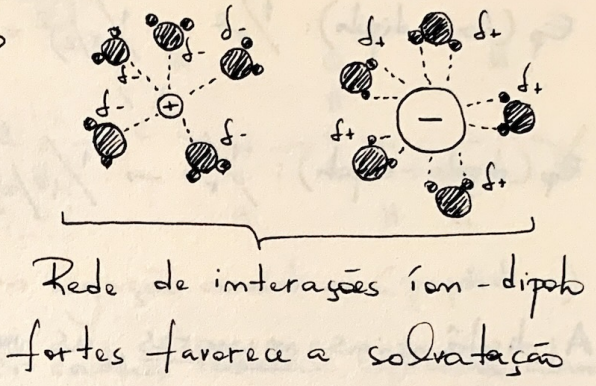 δ- δ- δ- δ- δ-
+
δ+ δ+ δ+ δ+ δ+
−
Rede de interações íon-dipolo
fortes favorece a solvatação